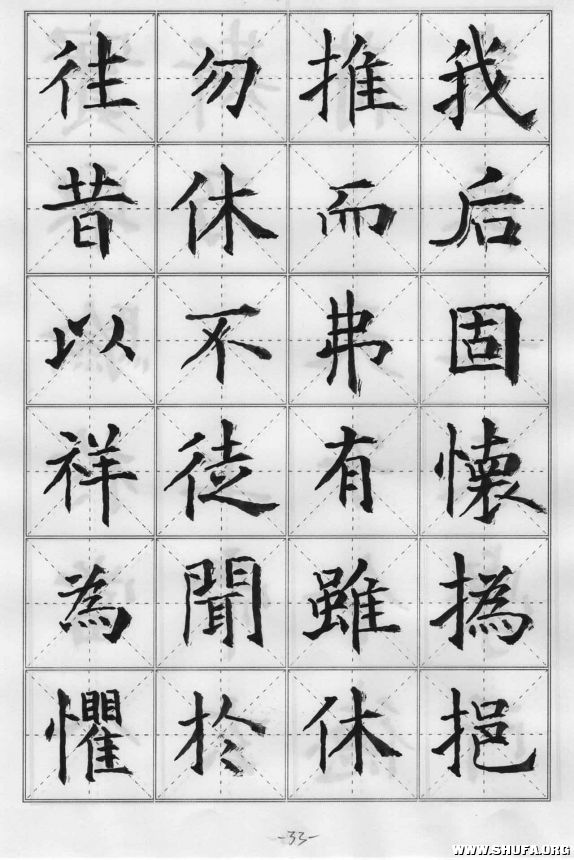 我后固懷撝挹
推而弗有雖休
勿休不徒聞於
往昔以祥為懼
-33-
WWW.SHUFA.ORG